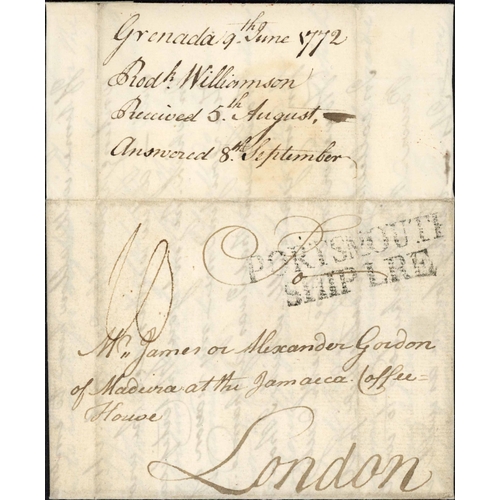 Grenada 9.th June 1772
Rodk. Williamson
Received 5.th August.
Answered 8.th September
PORTSMOUTH
SHIP LRE
Mr. James or Alexander Gordon
of Madeira at the Jamaica Coffee=
House
London